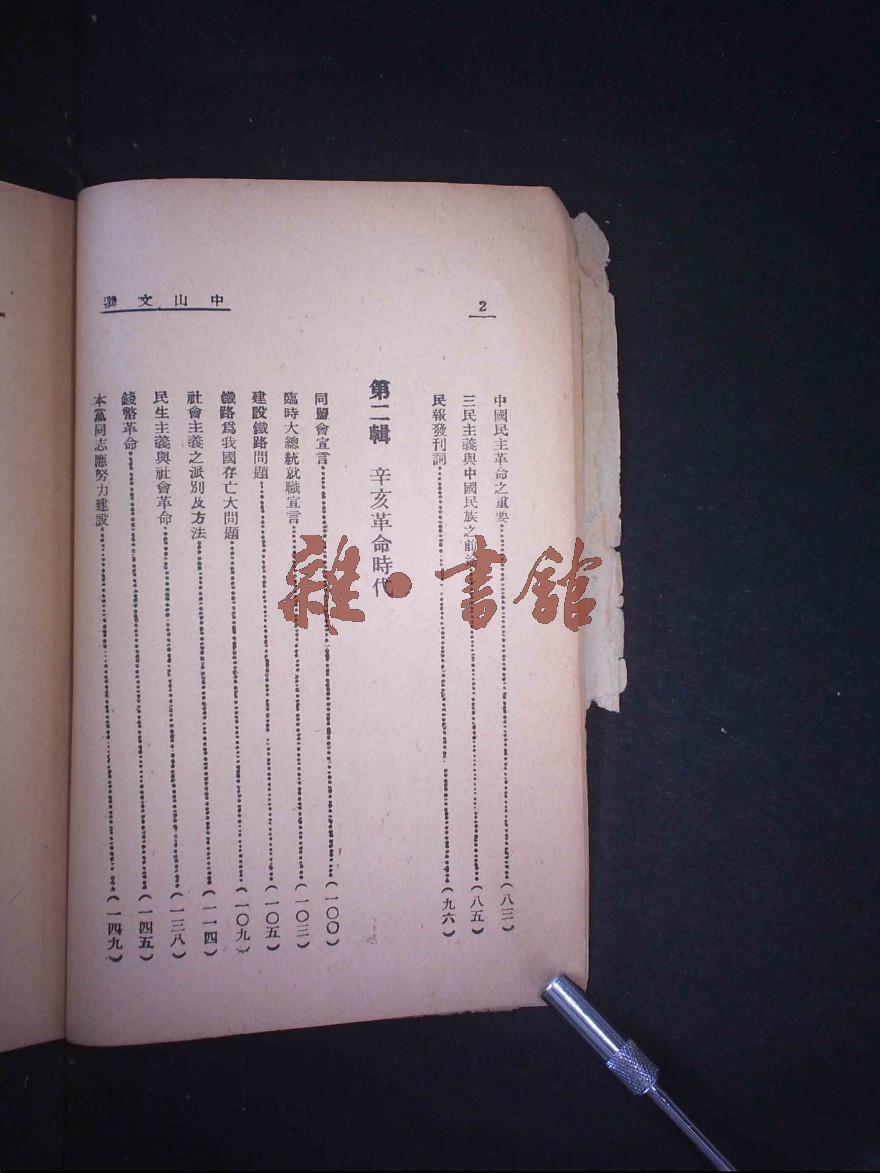 2
中山文選
中國民主革命之重要……(八三)
三民主義與中國民族之前途……(八五)
民報發刊詞……(九六)
第二輯 辛亥革命時代
同盟會宣言……(一〇〇)
臨時大總統就職宣言……(一〇三)
建設鐵路問題……(一〇五)
鐵路爲我國存亡大問題……(一〇九)
社會主義之派別及方法……(一一四)
民生主義與社會革命……(一三八)
錢幣革命……(一四五)
本黨同志應努力建設……(一四九)
雜·書館